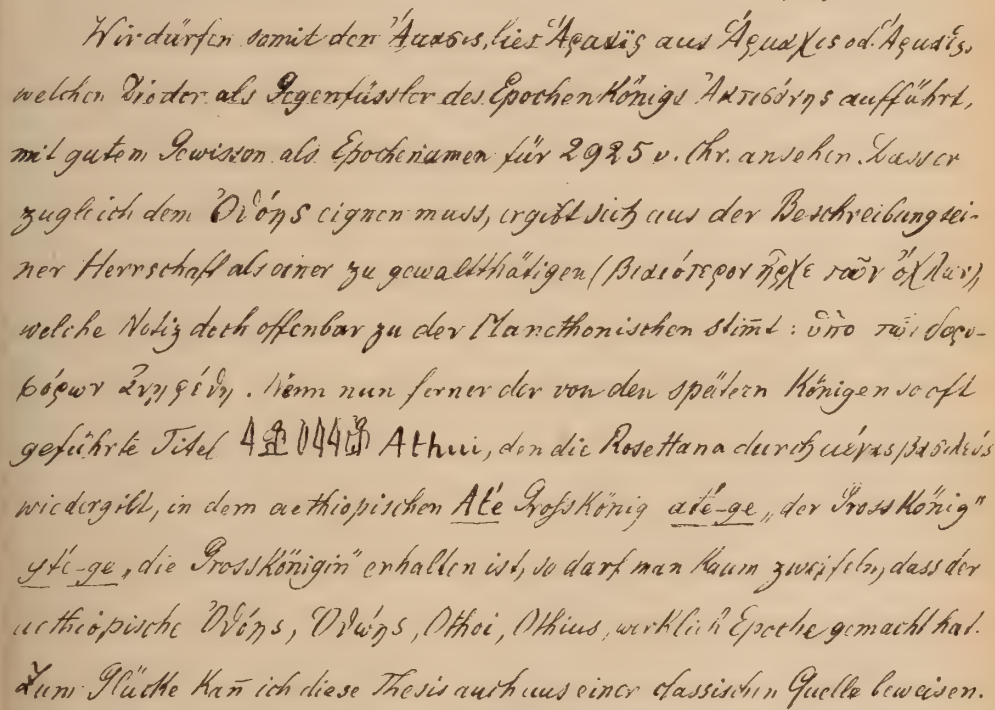 Wir dürfen somit den Ἄμασις, lies Ἄρμαϊς aus Ἅρμαχις od. Ἅρμαϊς,
welchen Diodor als Gegenfüssler des Epochenkönigs Ἀκτισάνης aufführt,
mit gutem Gewissen als Epochenamen für 2925 v. Chr. ansehen. Dass er
zugleich dem Ὀθόης eignen muss, ergibt sich aus der Beschreibung sei-
ner Herrschaft als einer zu gewaltthätigen (βιαιότερον ἦρχε τῶν ὄχλων),
welche Notiz doch offenbar zu der Manethonischen stim̄t: ὑπὸ τῶν δορυ-
φόρων ἀνῃρέθη. Wenn nun ferner der von den spätern Königen so oft
geführte Titel Athui, den die Rosettana durch μέγας βασιλεύς
wiedergibt, in dem aethiopischen Até Grofskönig até-ge „der Grosskönig"
yté-ge „die Grosskönigin" erhalten ist, so darf man kaum zweifeln, dass der
aethiopische Ὀθόης, Ὀθώης, Othoi, Othius, wirklich Epoche gemacht hat.
Zum Glücke kan̄ ich diese Thesis auch aus einer classischen Quelle beweisen.